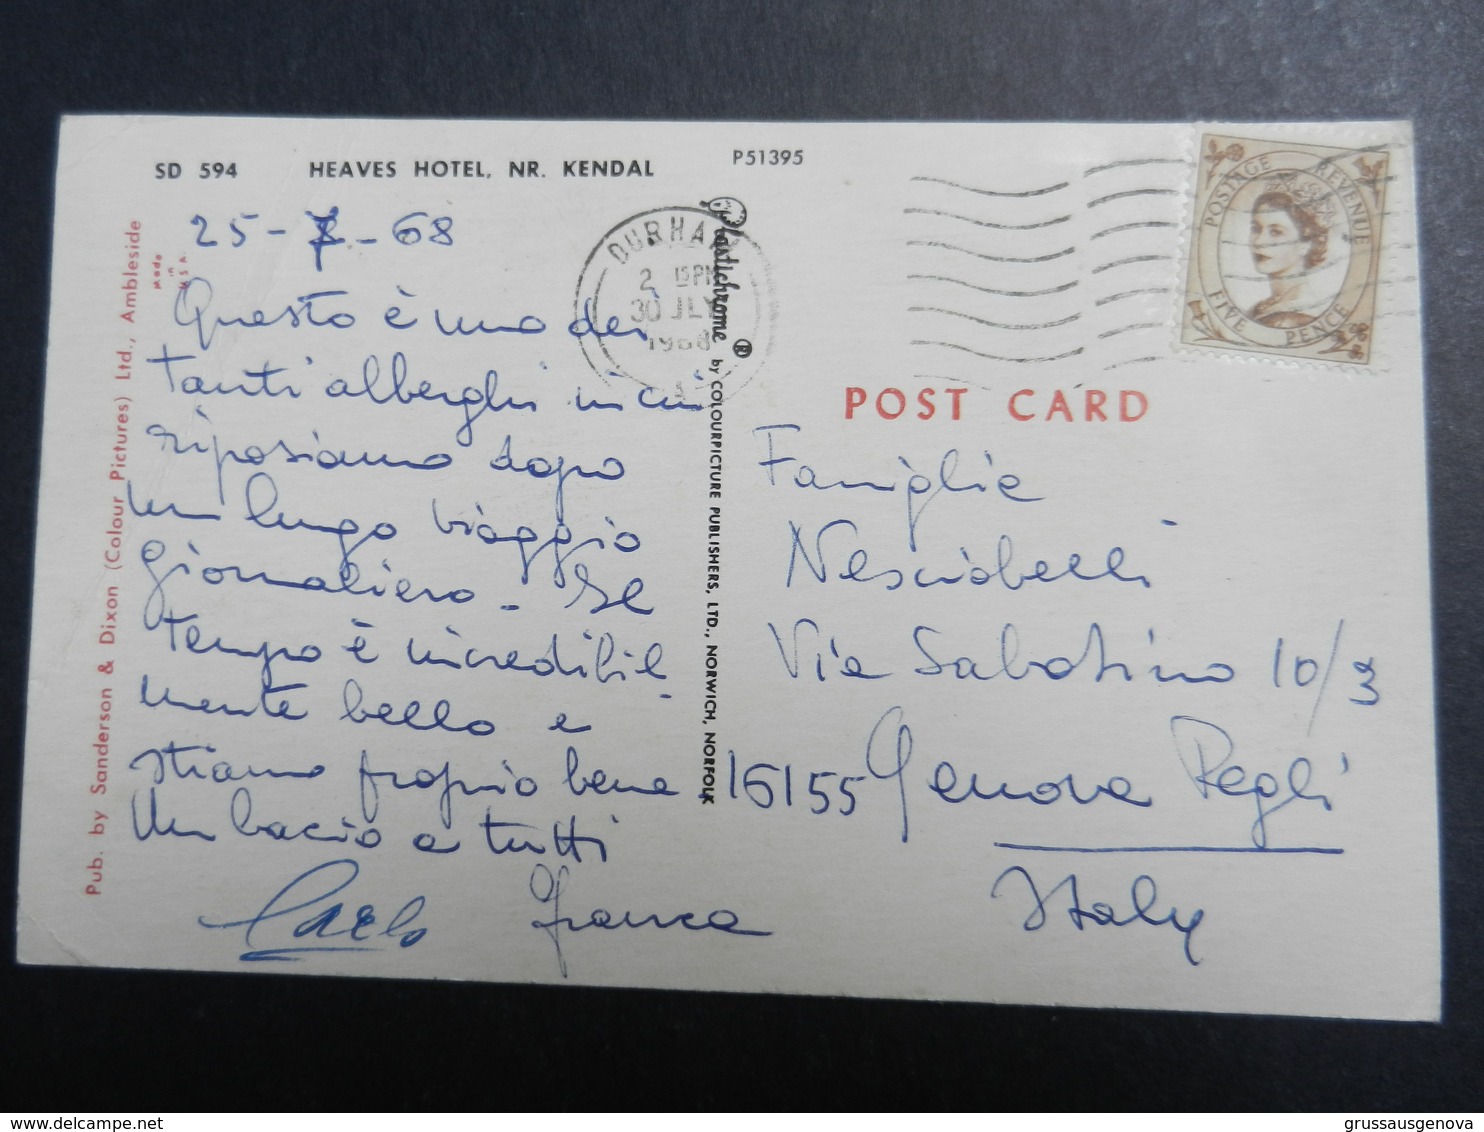 SD 594 HEAVES HOTEL, NR. KENDAL
P51395
25-7-68
Questo è uno dei
tanti alberghi in cui
riposiamo dopo
un lungo viaggio
giornaliero - Il
tempo è incredibil
mente bello e
stiamo proprio bene
Un bacio a tutti
Carlo Franca
Pub. by Sanderson & Dixon (Colour Pictures) Ltd., Ambleside
Made
in
U.S.A.
Plastichrome ® by COLOURPICTURE PUBLISHERS, LTD., NORWICH, NORFOLK
DURHAM
2 15PM
30 JLY
1968
POSTAGE REVENUE
FIVE PENCE
POST CARD
Famiglia
Via Sabotino 10/3
16155 Genova Pegli
Italy
grussausgenova